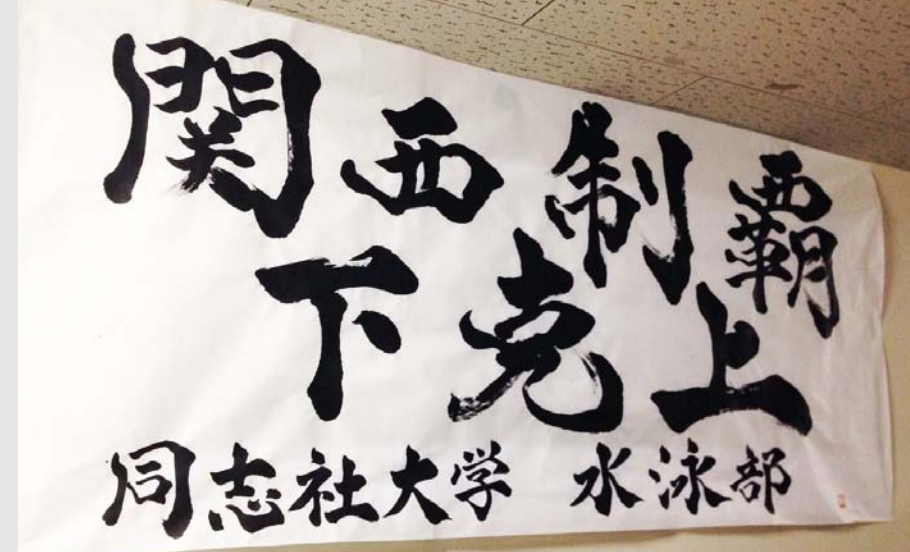 関西制覇
下克上
同志社大学 水泳部